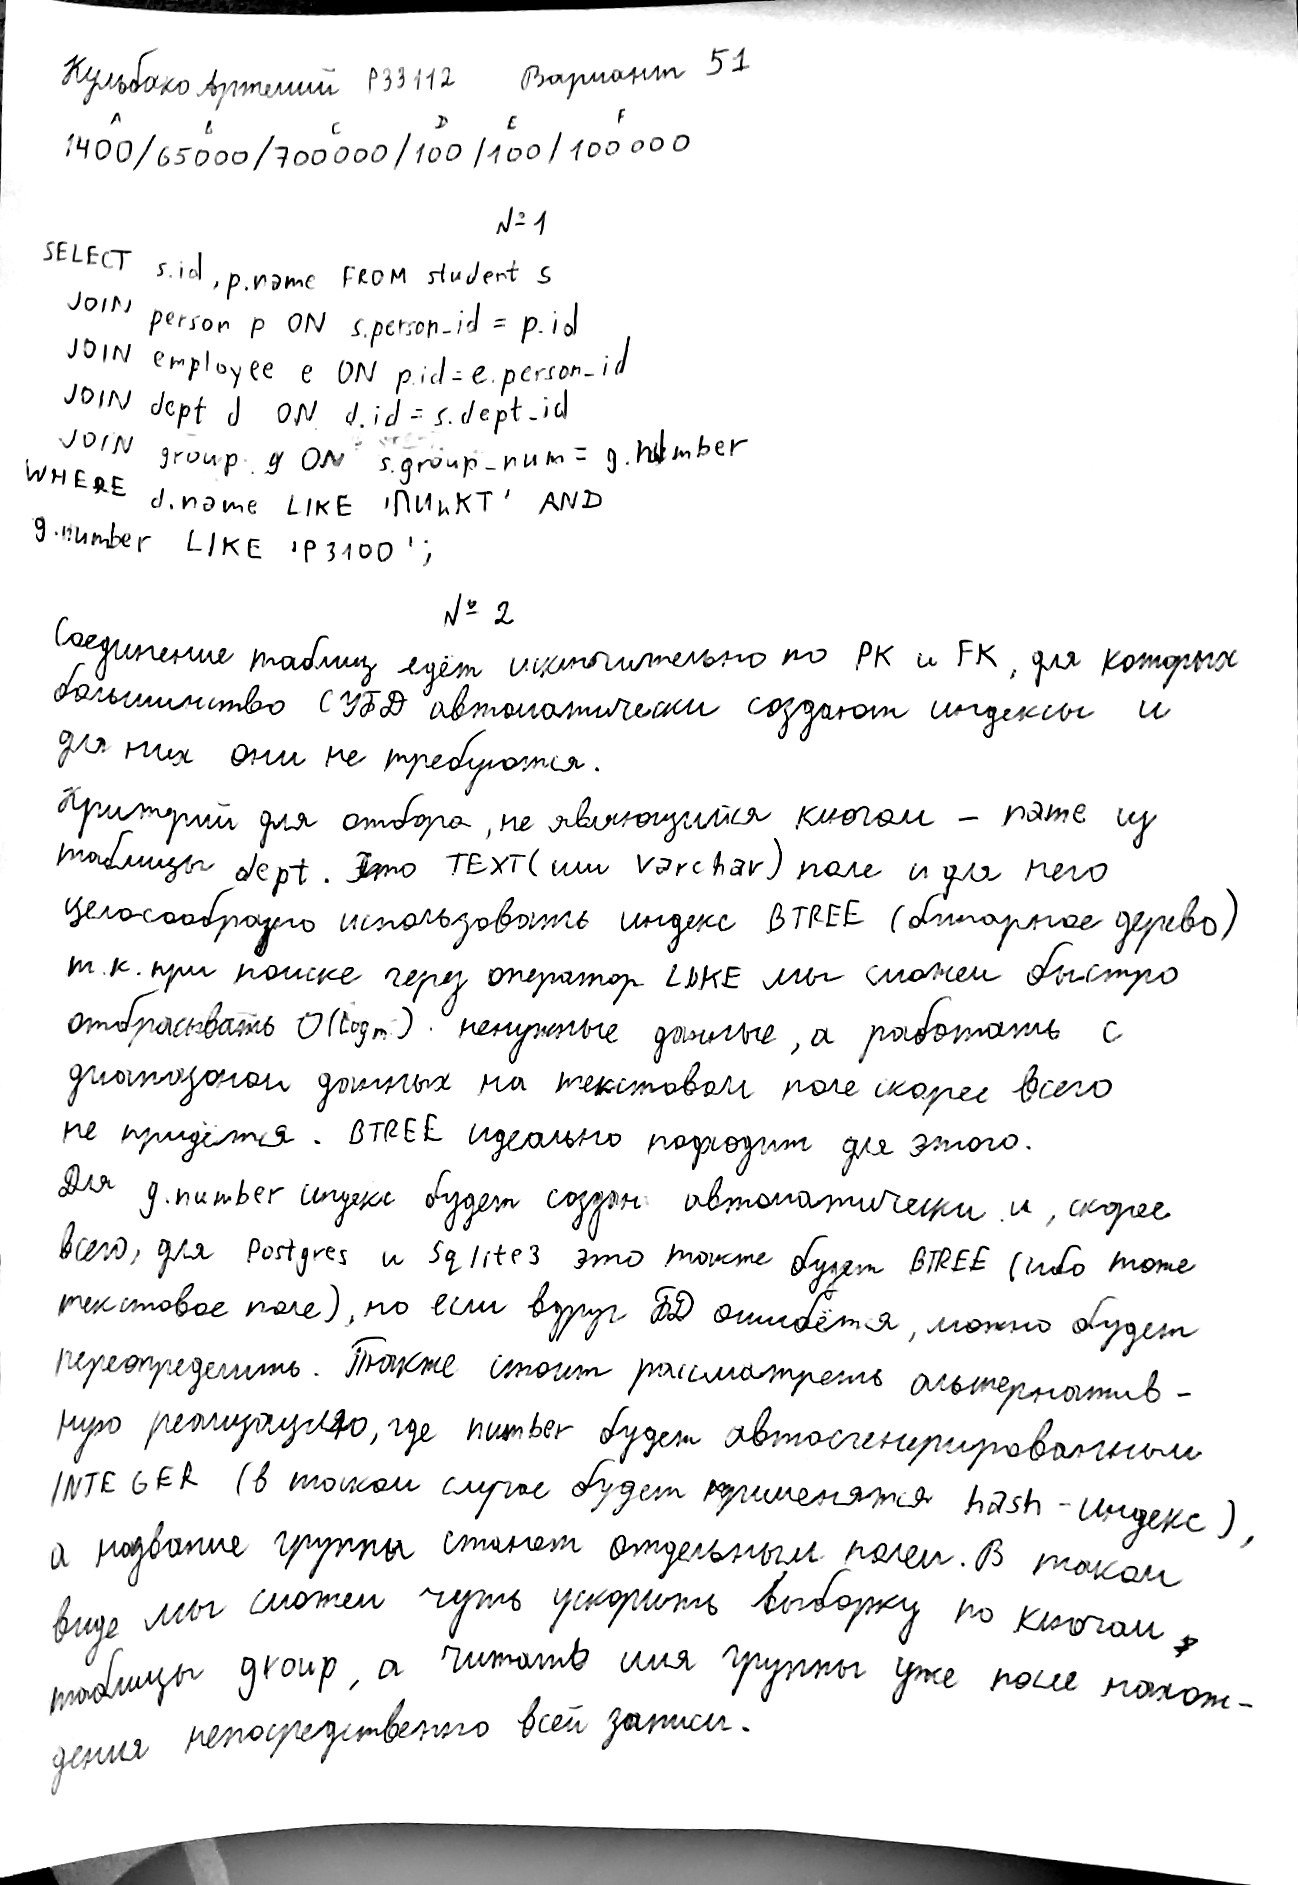 Кульбако Артемий P33112 Вариант 51
A B C D E F
1400/65000/700000/100/100/100000
№1
SELECT s.id, p.name FROM student s
JOIN person p ON s.person_id = p.id
JOIN employee e ON p.id = e.person_id
JOIN dept d ON d.id = s.dept_id
JOIN group g ON s.group_num = g.number
WHERE d.name LIKE 'ПИиКТ' AND
g.number LIKE 'P3100';
№ 2
Соединение таблиц едёт исключительно по PK и FK, для которых
большинство СУБД автоматически создают индексы и
для них они не требуются.
Критерий для отбора, не являющийся ключом – name из
таблицы dept. Это TEXT (или varchar) поле и для него
целесообразно использовать индекс BTREE (бинарное дерево)
т.к. при поиске через оператор LIKE мы сможем быстро
отбрасывать O(log n) ненужные данные, а работать с
диапазоном данных на текстовом поле скорее всего
не придётся. BTREE идеально подходит для этого.
Для g.number индекс будет создан автоматически и, скорее
всего, для Postgres и Sqlite3 это также будет BTREE (ибо тоже
текстовое поле), но если вдруг БД ошибётся, можно будет
переопределить. Также стоит рассмотреть альтернатив-
ную реализацию, где number будет автосгенерированным
INTEGER (в таком случае будет применятся hash-индекс),
а название группы станет отдельным полем. В таком
виде мы сможем чуть ускорить выборку по ключам
таблицы group, а читать имя группы уже после нахож-
дения непосредственно всей записи.